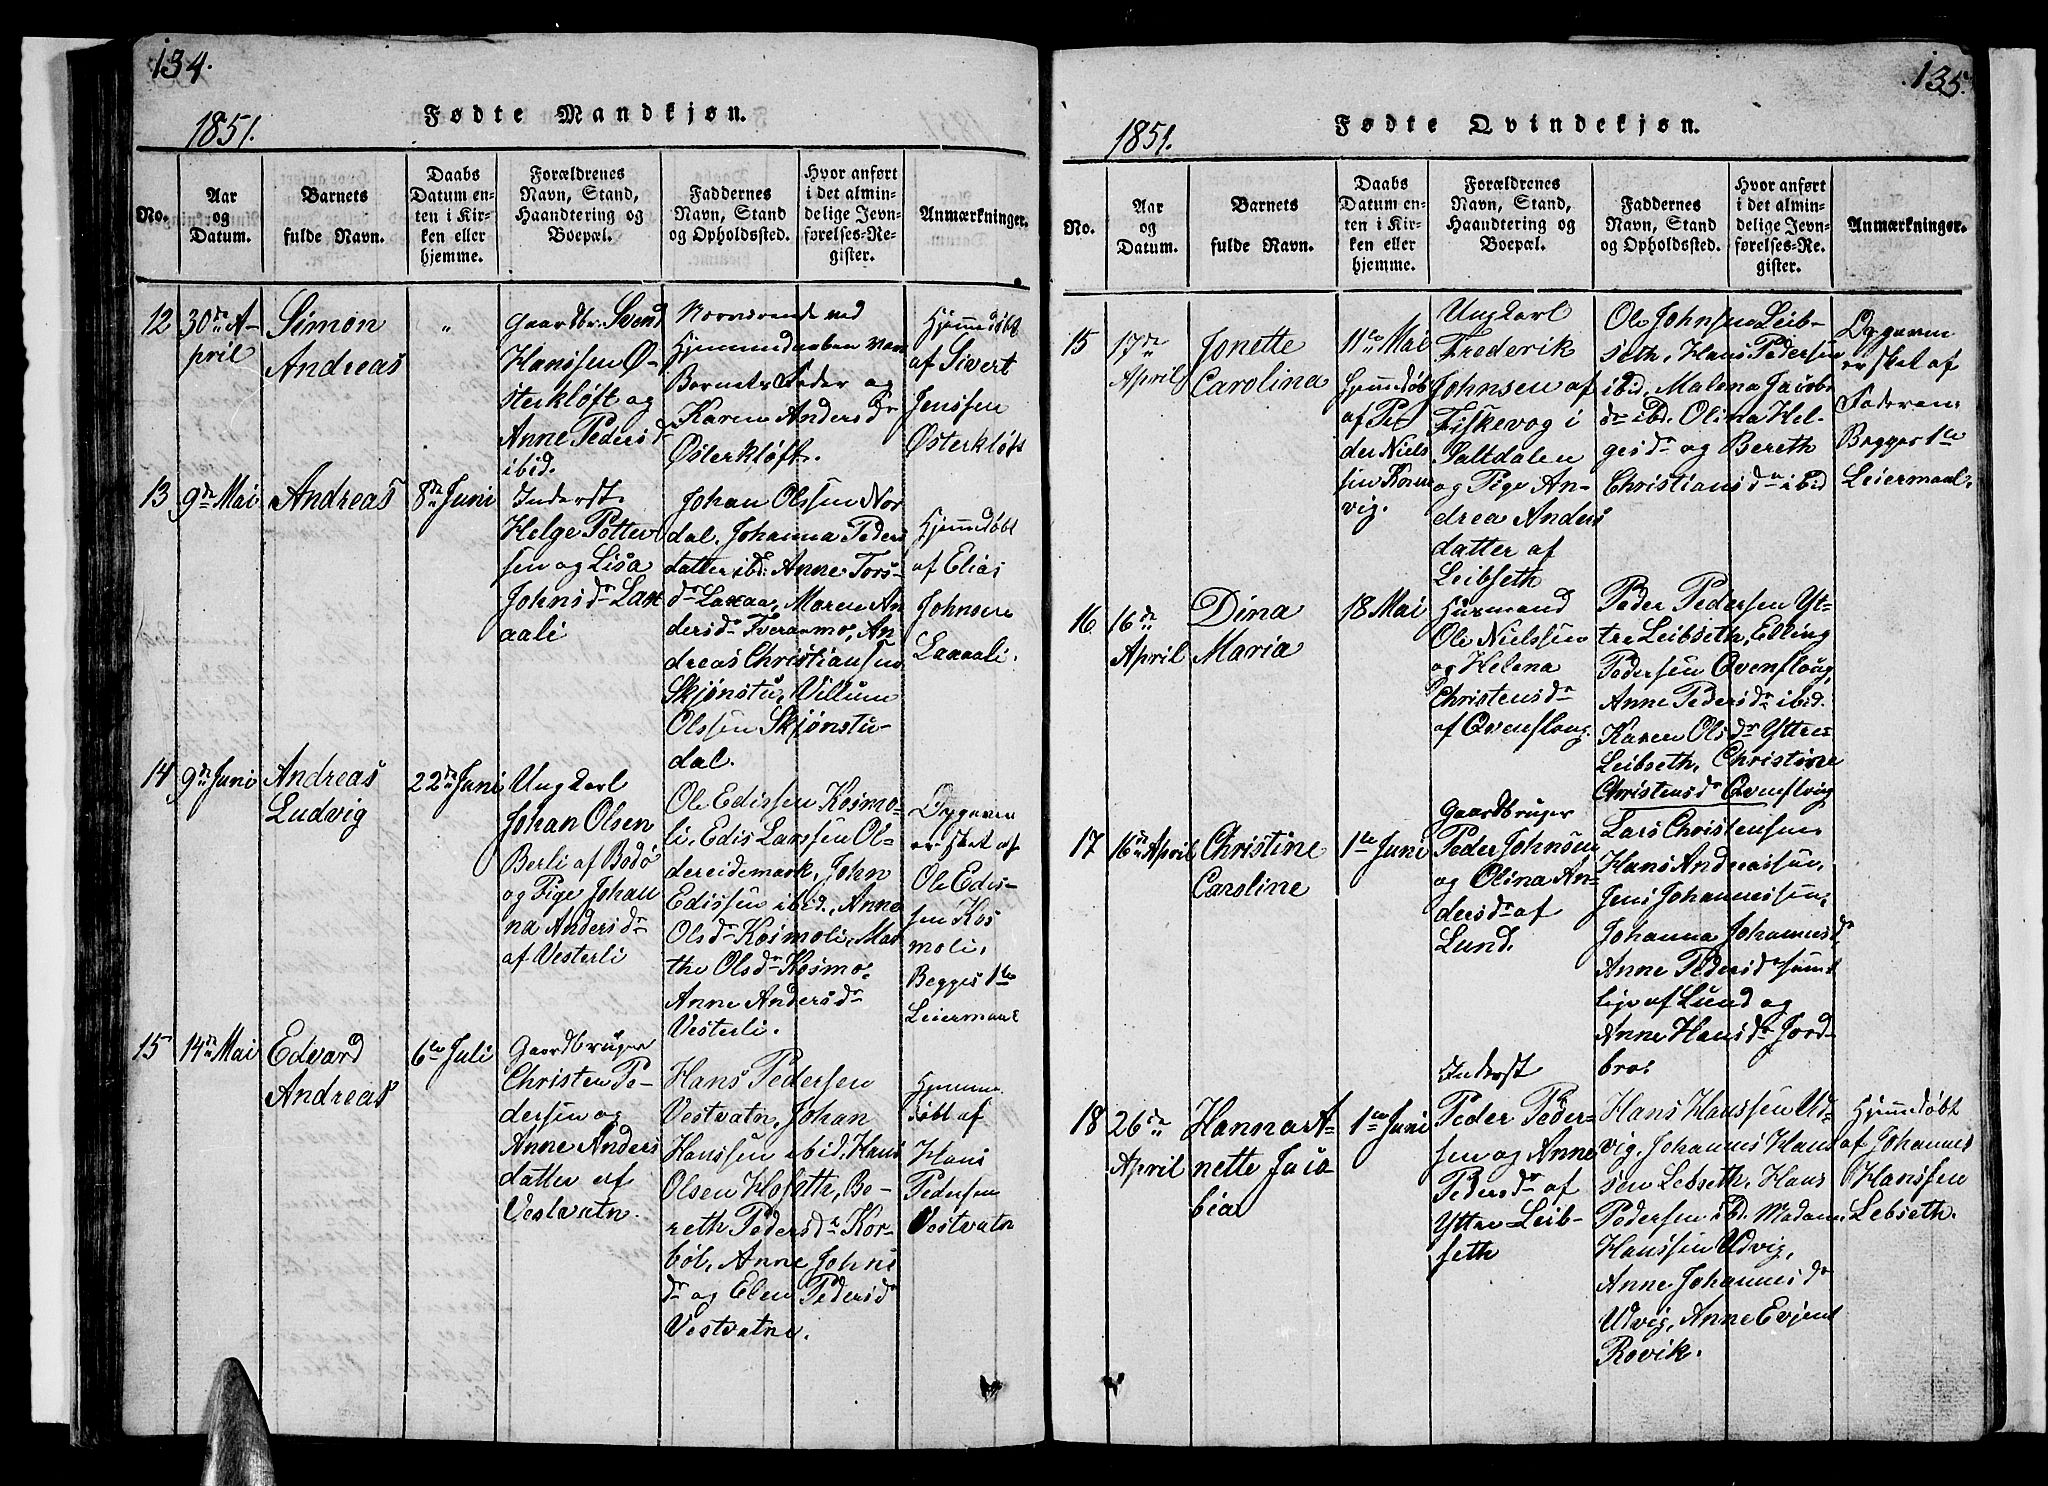 134.
1851.
Fødte Mandkjøn.
No.
Aar
og
Datum.
Barnets
fulde Navn.
Daabs
Datum en-
ten i Kir-
ken eller
hjemme.
Forældrenes
Navn, Stand,
Haandtering og
Boepæl.
Faddernes
Navn, Stand
og Opholdssted.
Hvor anført
i det almin-
delige Jevn-
førelses-Re-
gister.
Anmærkninger.
12
30de A-
pril
Simon
Andreas
"
Gaardbr. Svend
Hanssen Ø-
sterkløft og
Anne Pedersd
ibid.
Nærværende ved
Hjemmedaaben var
Barnets Fader og
Karen Andersdr
Østerkløft.
Hjemmedøbt
af Sivert
Jenssen
Østerkløft
13
9de Mai
Andreas
8de Juni
Inderst
Helge Petter
sen og Lisa
Johnsdr Lax
aali
Johan Olssen Nor
dal, Johanna Peders
datter ibd: Anne Tors-
dr Laxaa, Maren An
dersdr Tveraamo, An
dreas Christianssen
Skjønstu, Villum
Olssen Skjønstu-
dal.
Hjemmedøbt
af Elias
Johnsen
Laxaali.
14
9de Juni
Andreas
Ludvig
22de Juni
Ungkarl
Johan Olsen
Berli af Bodø
og Pige Johan
na Andersdr
af Vesterli
Ole Edissen Kosmo-
li, Edis Larssen Ol-
dereidemark, John
Edissen ibid, Anne
Olsdr Kosmoli, Mar
the Olsdr Kosmo,
Anne Andersdr
Vesterli.
Opgaven
er sket af
Ole Edis-
sen Kos
moli,
Begges 1te
Leiermaal
15
14de Mai
Edvard
Andreas
6te Juli
Gaardbruger
Christen Pe-
dersen og
Anne Anders
datter af
Vestvatn.
Hans Pedersen
Vestvatn, Johan
Hanssen ibid, Hans
Olsen Hoset, Be-
reth Pedersdr Kor-
bøl, Anne Johns
dr og Elen Pedersdr
Vestvatn.
Hjemme
døbt af
Hans
Pedersen
Vestvatn
135.
1851.
Fødte Qvindekjøn.
No.
Aar
og
Datum.
Barnets
fulde Navn.
Daabs
Datum en-
ten i Kir-
ken eller
hjemme.
Forældrenes
Navn, Stand,
Haandtering og
Boepæl.
Faddernes
Navn, Stand
og Opholdssted.
Hvor anført
i det almin-
delige Jevn-
førelses-Re-
gister.
Anmærkninger.
15
17de
April
Jonette
Carolina
11te Mai
Hjemmedøbt
af Pe
der Niels
sen
vig.
Ungkarl
Frederik
Johnsen af
Fiskevog i
Saltdalen
og Pige An-
drea Anders
datter af
Leibseth
Ole Johnsen Leib-
seth, Hans Pedersen
ibid, Malena Jacobs
dr ibd. Olina Hel-
gesdr og Bereth
Christiansdr ibid
Opgaven
er sket af
Faderen.
Begges 1te
Leiermaal.
16
16de
April
Dina
Maria
18 Mai
Husmand
Ole Nielssen
og Helena
Christensdr
af Qvenflaug
Peder Pedersen Yt-
tre Leibseth, Elling
Pedersen Qvenflaug,
Anne Pedersdr ibid.
Karen Olsdr Yttre
Leibseth, Christine
Christensdr Qvenflaug
17
16de April
Christine
Caroline
1te Juni
Gaardbruger
Peder Johnsen
og Olina An-
dersdr af
Lund.
Lars Christensen
Hans Andreassen,
Jens Johannessen,
Johanna Johannesdr
Anne Pedersdr samt
lige af Lund og
Anne Hansdr Jord-
bro.
18
26de
April
Hanna A-
nette Jaco
bia
1te Juni
Inderst
Peder Peder-
sen og Anne
Pedersdr af
Ytter-Leib-
seth
Hans Hanssen Ud-
vig, Johannes Hans
sen Lebseth, Hans
Pedersen ibd. Madam
Hanssen Udvig,
Anne Johannesdr
Udvig, Anne Evjent
Rovik.
Hjemmedøbt
af Johannes
Hanssen
Lebseth.